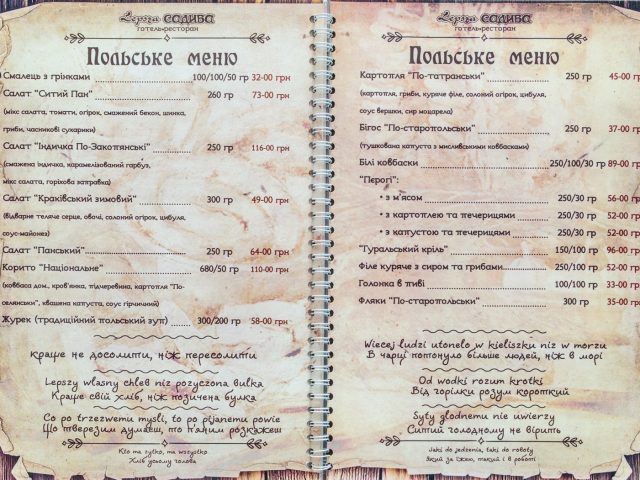 Lepsza САДИБА
готель•ресторан
Польське меню
Смалець з грінками 100/100/50 гр 32-00 грн
Салат "Ситий Пан" 260 гр 73-00 грн
(мікс салата, томати, огірок, смажений бекон, шинка,
гриби, часникові сухарики)
Салат "Індичка По-Закопянські" 250 гр 116-00 грн
(смажена індичка, карамелізований гарбуз,
мікс салата, горіхова заправка)
Салат "Краківський зимовий" 300 гр 49-00 грн
(відварне теляче серце, овочі, солоний огірок, цибуля,
соус-майонез)
Салат "Панський" 250 гр 64-00 грн
Корито "Національне" 680/50 гр 110-00 грн
(ковбаса дом., кров'янка, підчеревина, картопля "По-
селянськи", квашена капуста, соус гірчичний)
Журек (традиційний польський зуп) 300/200 гр 58-00 грн
краще не досолити, ніж пересолити
Lepszy wlasny chleb niz pozyczona bulka
Краще свій хліб, ніж позичена булка
Co po trzezwemu mysli, to po pijanemu powie
Що тверезим думаєш, то п'яним розкажеш
Kto ma zytko, ma wszystko
Хліб усьому голова
Lepsza САДИБА
готель•ресторан
Польське меню
Картопля "По-татранськи" 250 гр 45-00 гр
(картопля, гриби, куряче філе, солоний огірок, цибуля,
соус вершки, сир моцарела)
Бігос "По-старопольськи" 250 гр 37-00 гр
(тушкована капуста з мисливськими ковбасками)
Білі ковбаски 250/100/30 гр 89-00 гр
"Перогі":
• з м'ясом 250/30 гр 56-00 гр
• з картоплею та печерицями 250/30 гр 52-00 гр
• з капустою та печерицями 250/30 гр 52-00 гр
"Гуральський кріль" 150/100 гр 96-00 гр
Філе куряче з сиром та грибами 250/100 гр 52-00 гр
Голонка в пиві 100/100 гр 33-00 гр
Фляки "По-старопольськи" 300 гр 35-00 гр
Wiecej ludzi utonelo w kieliszku niz w morzu
В чарці потонуло більше людей, ніж в морі
Od wodki rozum krotki
Від горілки розум короткий
Syty glodnemu nie uwierzy
Ситий голодному не вірить
Jaki do jedzenia, taki do roboty
Який за їжею, такий і в роботі